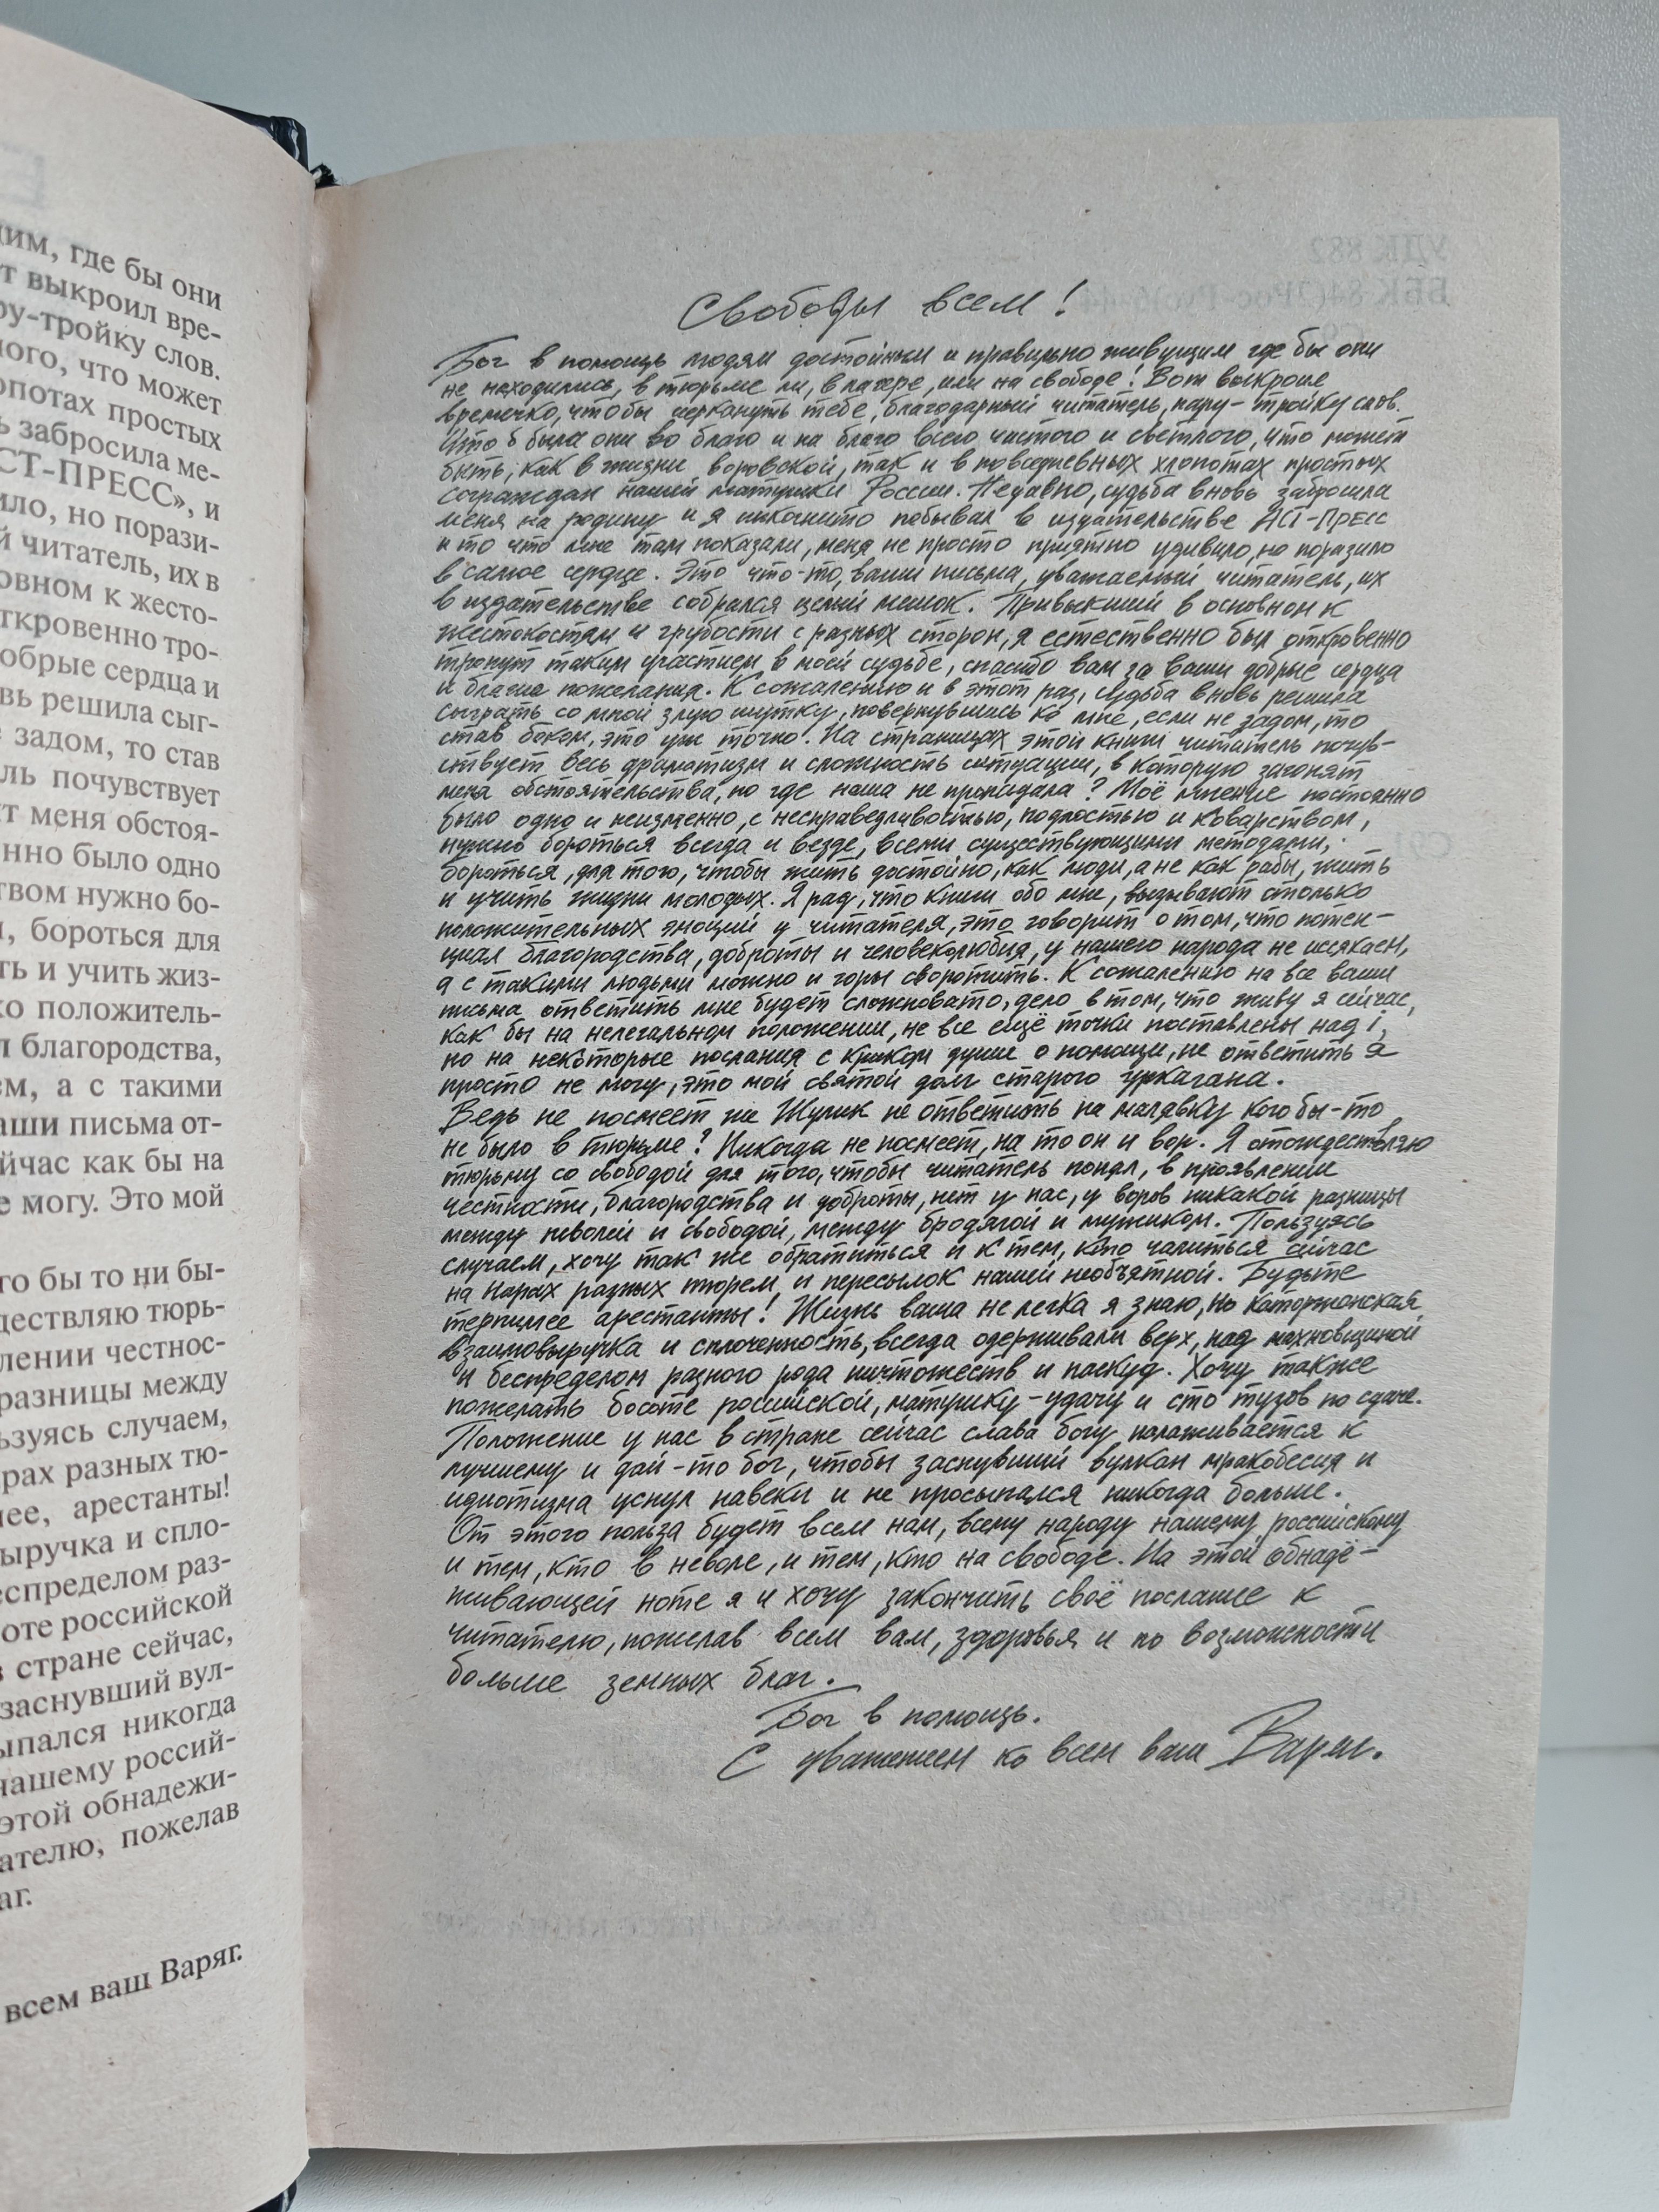 дим, где бы они
т выкроил вре-
ру-тройку слов.
ого, что может
опотах простых
ь забросила ме-
СТ-ПРЕСС», и
ило, но порази-
й читатель, их в
овном к жесто-
ткровенно тро-
обрые сердца и
вь решила сыг-
е задом, то став
ль почувствует
т меня обстоя-
нно было одно
твом нужно бо-
и, бороться для
ть и учить жиз-
ко положитель-
л благородства,
ем, а с такими
аши письма от-
йчас как бы на
е могу. Это мой
го бы то ни бы-
дествляю тюрь-
лении честнос-
разницы между
ьзуясь случаем,
рах разных тю-
нее, арестанты!
ыручка и спло-
еспределом раз-
оте российской
в стране сейчас,
заснувший вул-
ыпался никогда
нашему россий-
этой обнадежи-
ателю, пожелав
аг.
всем ваш Варяг.
УДК 882
Свободы всем!
Бог в помощь людям достойным и правильно живущим где бы они
не находились, в тюрьме ли, в лагере, или на свободе! Вот выкроил
времечко, чтобы черкануть тебе, благодарный читатель, пару-тройку слов.
Что б были они во благо и на благо всего чистого и светлого, что может
быть, как в жизни воровской, так и в повседневных хлопотах простых
сограждан нашей матушки России. Недавно, судьба вновь забросила
меня на родину и я инкогнито побывал в издательстве АСТ-ПРЕСС
и то что мне там показали, меня не просто приятно удивило, но поразило
в самое сердце. Это что-то, ваши письма, уважаемый читатель, их
в издательстве собрался целый мешок. Привыкший в основном к
жестокостям и грубости с разных сторон, я естественно был откровенно
тронут таким участием в моей судьбе, спасибо вам за ваши добрые сердца
и благие пожелания. К сожалению и в этот раз, судьба вновь решила
сыграть со мной злую шутку, повернувшись ко мне, если не задом, то
став боком, это уж точно. На страницах этой книги читатель почув-
ствует весь драматизм и сложность ситуации, в которую загонят
меня обстоятельства, но где наша не пропадала? Моё мнение постоянно
было одно и неизменно, с несправедливостью, подлостью и коварством,
нужно бороться всегда и везде, всеми существующими методами,
бороться, для того, чтобы жить достойно, как люди, а не как рабы, жить
и учить жизни молодых. Я рад, что книги обо мне, вызывают столько
положительных эмоций у читателя, это говорит о том, что потен-
циал благородства, доброты и человеколюбия, у нашего народа не иссякаем,
а с такими людьми можно и горы своротить. К сожалению на все ваши
письма ответить мне будет сложновато, дело в том, что живу я сейчас,
как бы на нелегальном положении, не все ещё точки поставлены над i,
но на некоторые послания с криком души о помощи, не ответить я
просто не могу, это мой святой долг старого уркагана.
Ведь не посмеет ни Жулик не ответить на малявку кого бы-то
не было в тюрьме? Никогда не посмеет, на то он и вор. Я отождествляю
тюрьму со свободой для того, чтобы читатель понял, в проявлении
честности, благородства и доброты, нет у нас, у воров никакой разницы
между неволей и свободой, между бродягой и мужиком. Пользуясь
случаем, хочу так же обратиться и к тем, кто чалиться сейчас
на нарах разных тюрем, и пересылок нашей необъятной. Будьте
терпимее арестанты! Жизнь ваша не легка я знаю, но каторжанская
взаимовыручка и сплоченность, всегда одерживали верх, над махновщиной
и беспределом разного рода ничтожеств и паскуд. Хочу также
пожелать босоте российской, матушку-удачу и сто тузов по сдаче.
Положение у нас в стране сейчас слава богу налаживается к
лучшему и дай-то бог, чтобы заснувший вулкан мракобесия и
идиотизма уснул навеки и не просыпался никогда больше.
От этого польза будет всем нам, всему народу нашему российскому
и тем, кто в неволе, и тем, кто на свободе. На этой обнадё-
живающей ноте я и хочу закончить своё послание к
читателю, пожелав всем вам, здоровья и по возможности
больше земных благ.
Бог в помощь.
С уважением ко всем ваш Варяг.